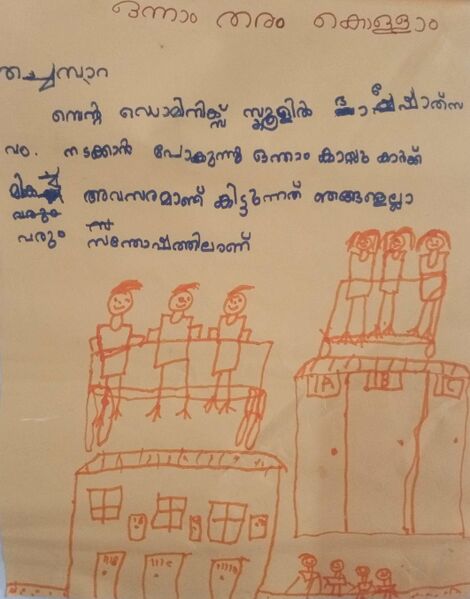 ഒന്നാം തരം കൊള്ളാം
തച്ചമ്പാറ
സെന്റ് ഡൊമിനിക്സ് സ്കൂളിൽ ഭാഷോത്സ
വം. നടക്കാൻ പോകുന്നു ഒന്നാം കാസു കാർക്ക്
മികച്ച അവസരമാണ് കിട്ടുന്നത് ഞങ്ങളെല്ലാ
വരും സന്തോഷത്തിലാണ്
A B C